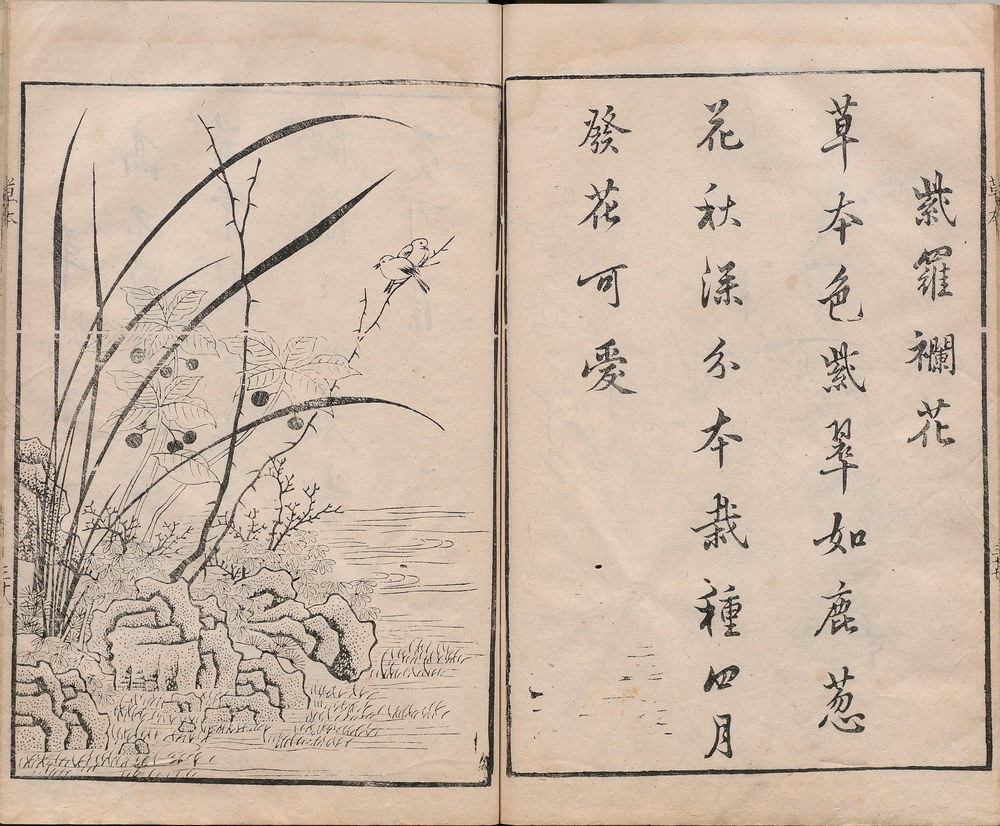 紫羅襴花
草本色紫翠如鹿葱
花秋深分本栽種四月
發花可愛
草本